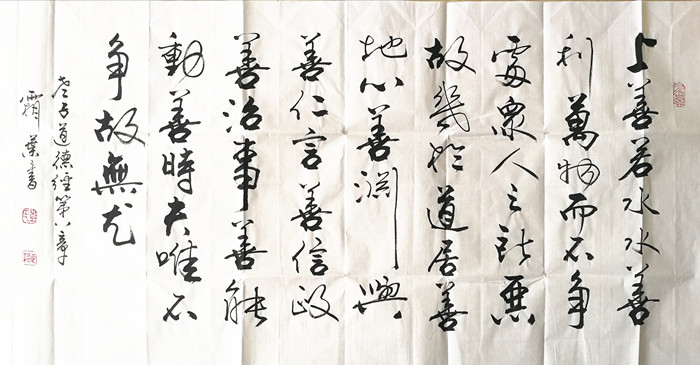 上善若水水善
利萬物而不争
處衆人之所惡
故幾於道居善
地心善淵與
善仁言善信政
善治事善能
動善時夫唯不
争故無尤
老子道德經第八章
霜葉書